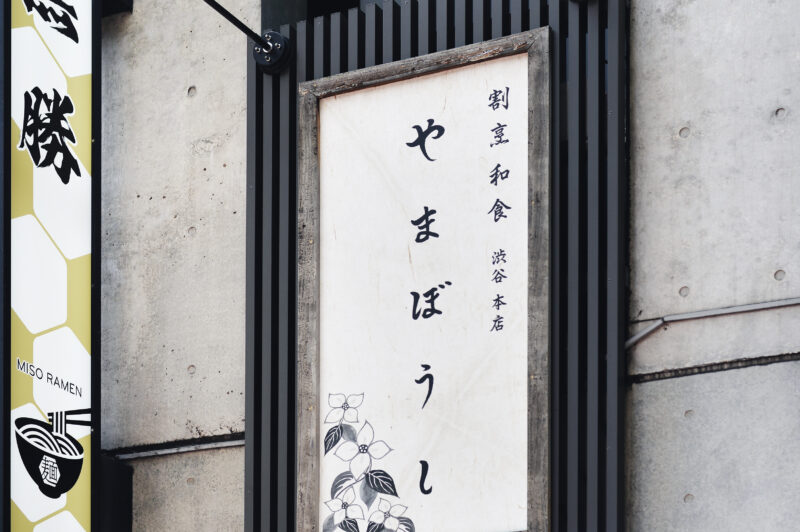 割烹 和食 渋谷本店
やまぼうし
勝
MISO RAMEN
麺